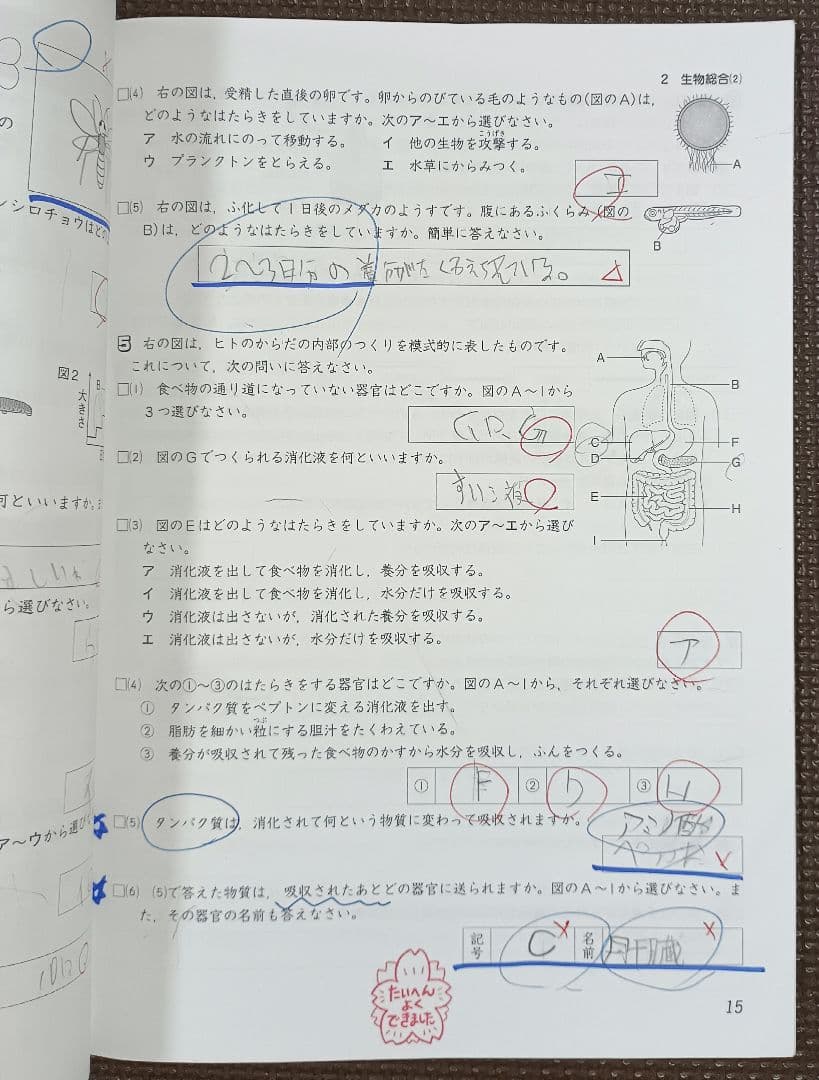 2 生物総合(2)
□(4) 右の図は，受精した直後の卵です。卵からのびている毛のようなもの(図のA)は，
どのようなはたらきをしていますか。次のア～エから選びなさい。
ア 水の流れにのって移動する。 イ 他の生物を攻撃する。
こうげき
ウ プランクトンをとらえる。 エ 水草にからみつく。
A
エ
□(5) 右の図は，ふ化して1日後のメダカのようすです。腹にあるふくらみ(図の
B)は，どのようなはたらきをしていますか。簡単に答えなさい。
B
2～3日分の
5 右の図は，ヒトのからだの内部のつくりを模式的に表したものです。
これについて，次の問いに答えなさい。
□(1) 食べ物の通り道になっていない器官はどこですか。図のA～Iから
3つ選びなさい。
A
B
C
D
E
F
G
H
I
□(2) 図のGでつくられる消化液を何といいますか。
すい液
□(3) 図のEはどのようなはたらきをしていますか。次のア～エから選び
なさい。
ア 消化液を出して食べ物を消化し，養分を吸収する。
イ 消化液を出して食べ物を消化し，水分だけを吸収する。
ウ 消化液は出さないが，消化された養分を吸収する。
エ 消化液は出さないが，水分だけを吸収する。
ア
□(4) 次の①～③のはたらきをする器官はどこですか。図のA～Iから，それぞれ選びなさい。
① タンパク質をペプトンに変える消化液を出す。
② 脂肪を細かい粒にする胆汁をたくわえている。
つぶ
③ 養分が吸収されて残った食べ物のかすから水分を吸収し，ふんをつくる。
① F ② D ③ H
□(5) タンパク質は，消化されて何という物質に変わって吸収されますか。
アミノ酸
□(6) (5)で答えた物質は，吸収されたあとどの器官に送られますか。図のA～Iから選びなさい。ま
た，その器官の名前も答えなさい。
記号 C 名前 肝臓
たいへん
よく
できました
15
ンシロチョウはど
図2
大きさ
可といいますか。
ら選びなさい。
ア～ウから選び